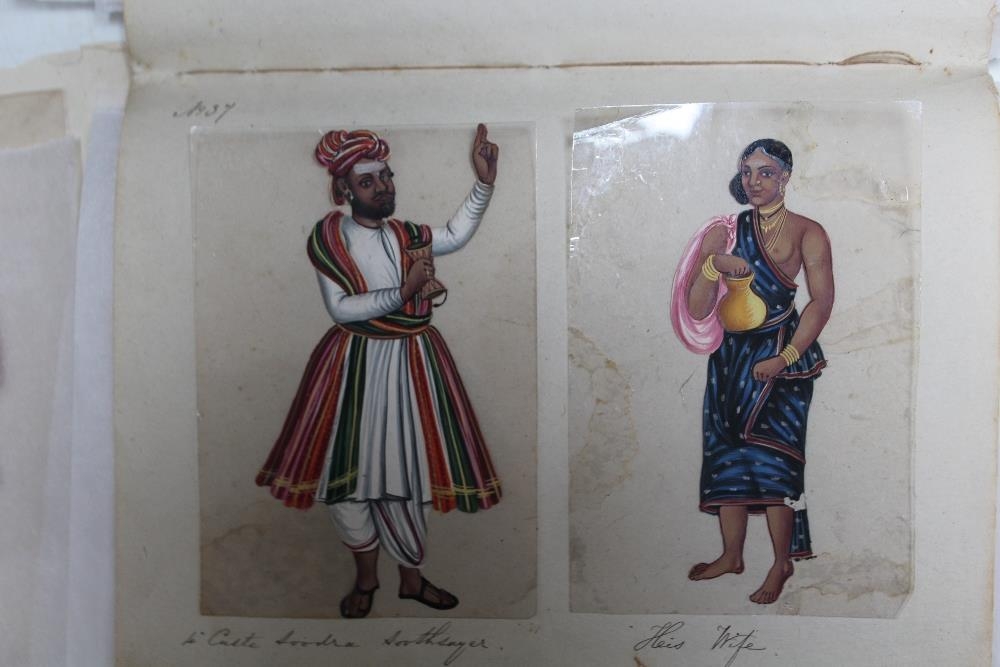 No 37
Caste Soodra Soothsayer.
Heis Wife.